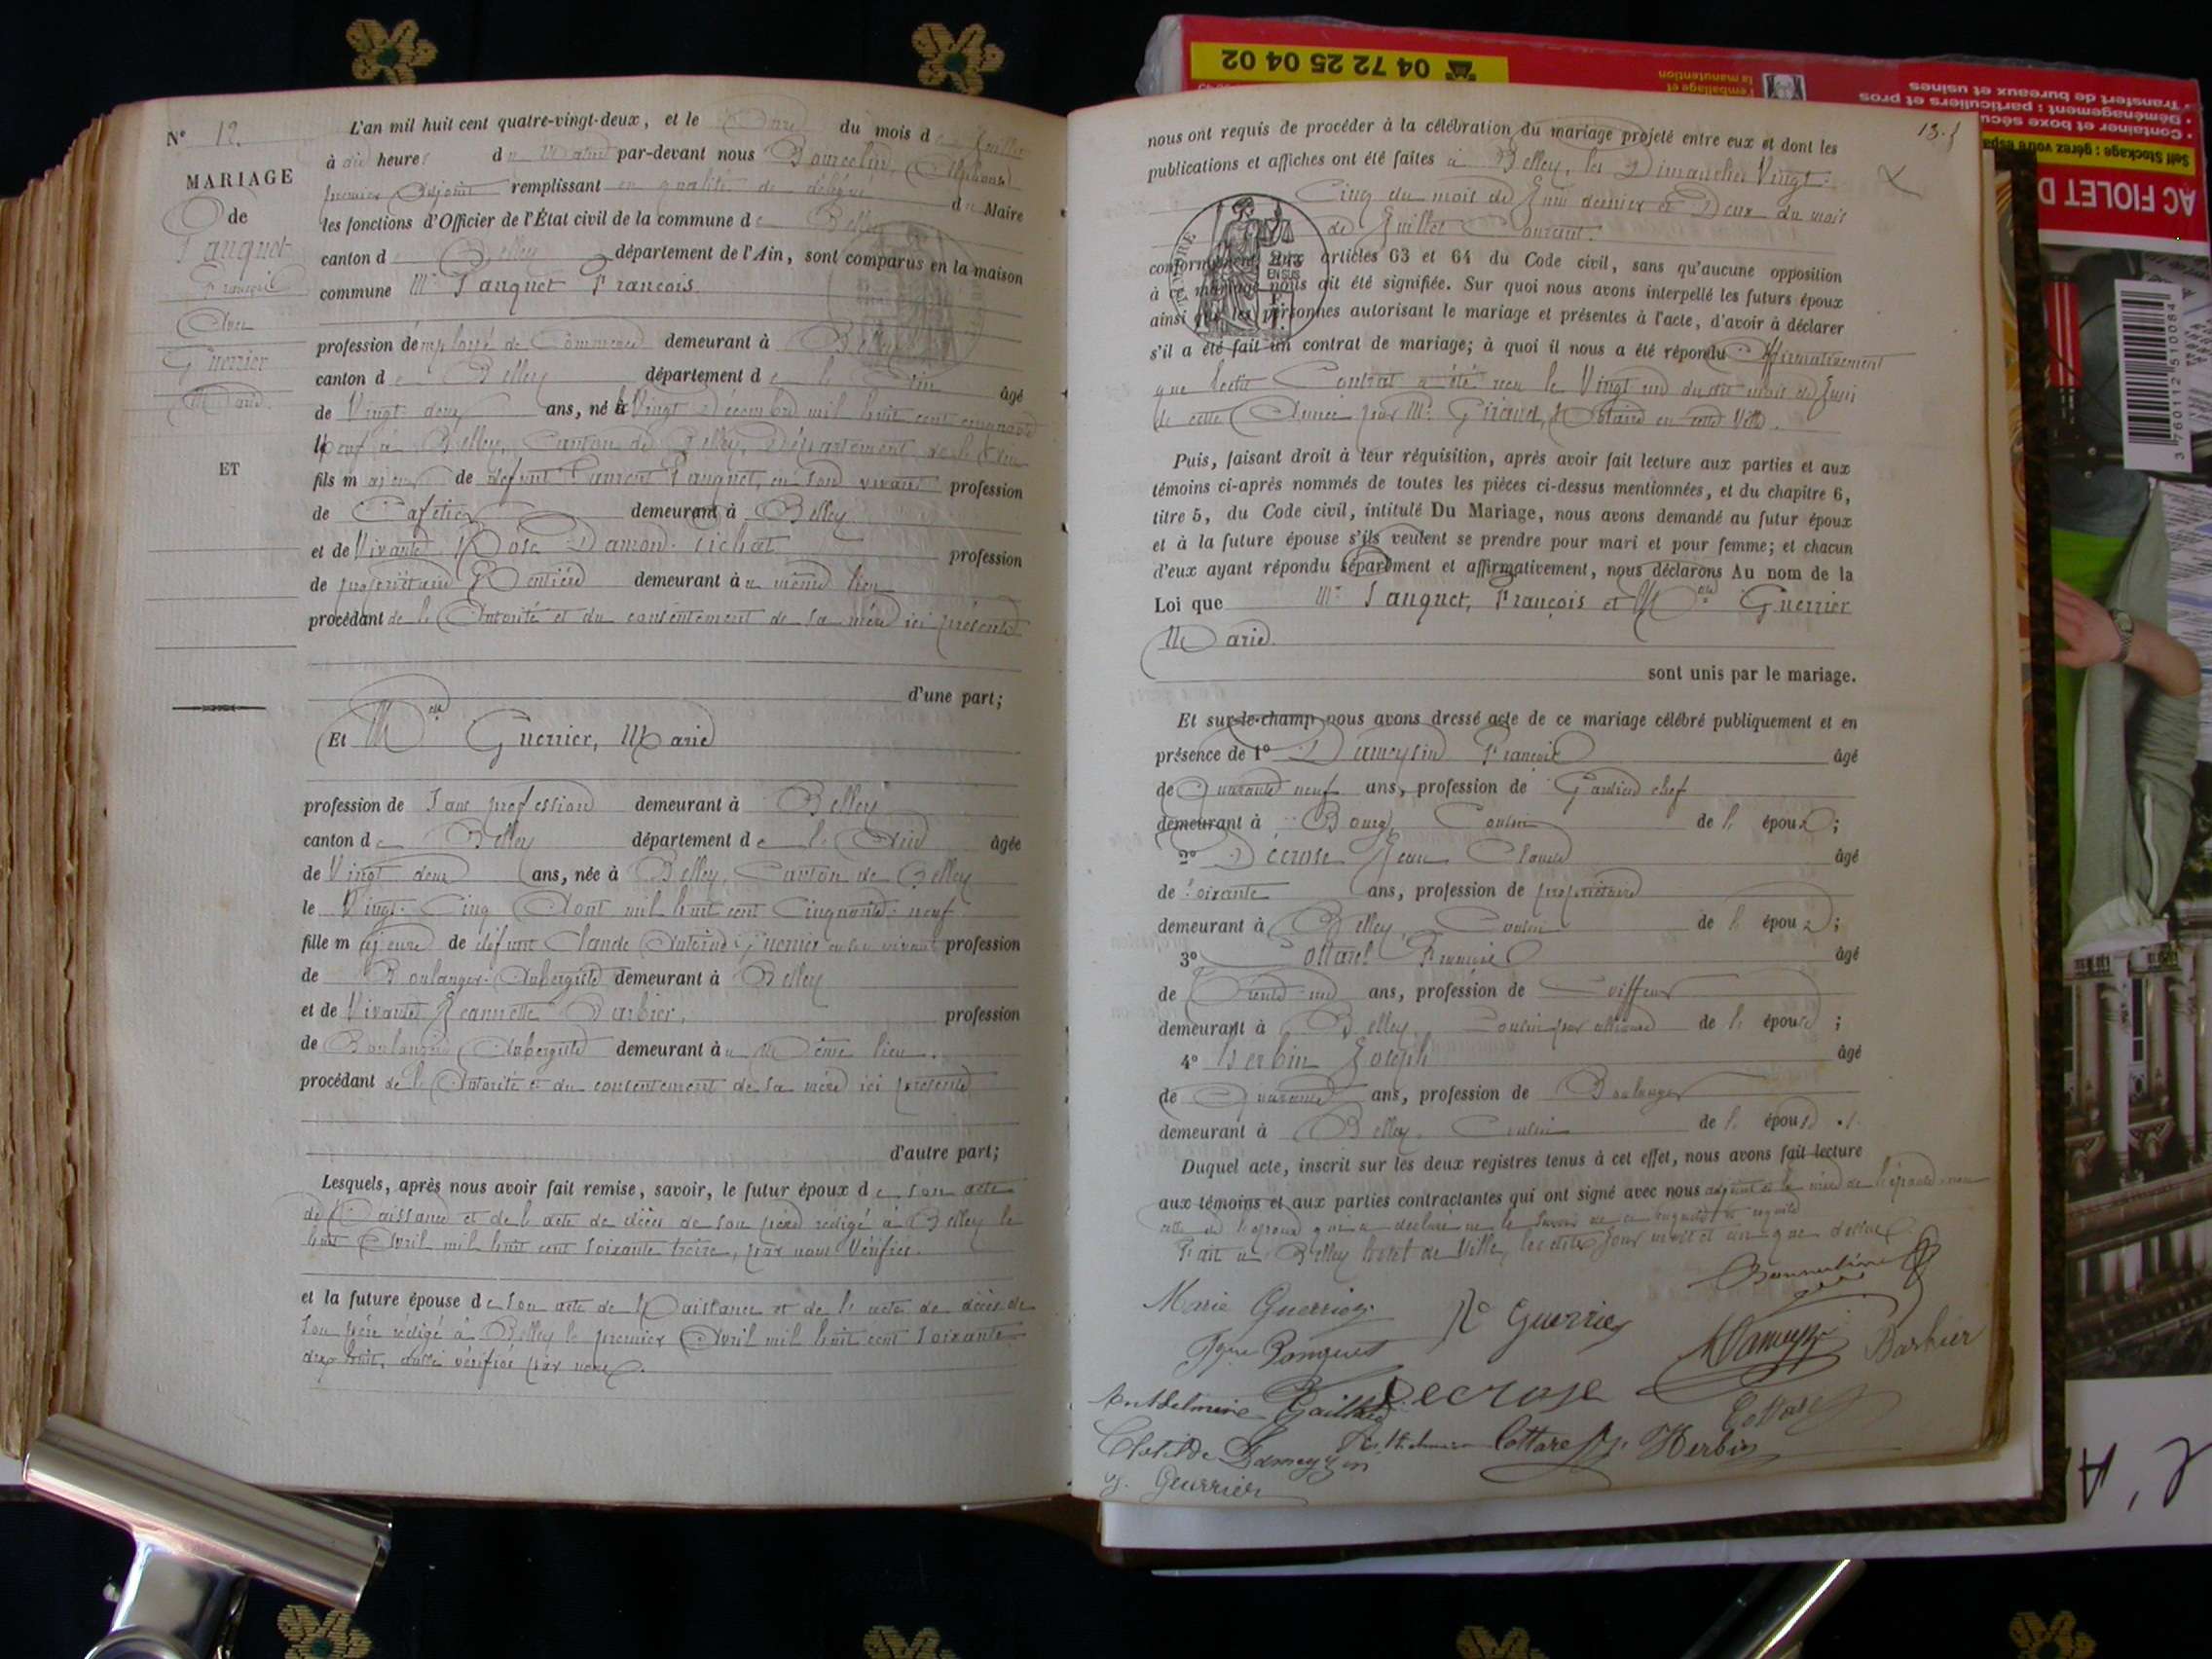 N° 12.
MARIAGE
de
Panquet
François
Avec
Guerrier
Marie
ET
L'an mil huit cent quatre-vingt-deux, et le Onze du mois de Juillet
à dix heures du Matin par-devant nous (Alphonse)
premier Adjoint remplissant en qualité de délégué du Maire
les fonctions d'Officier de l'État civil de la commune de Belley
canton de Belley département de l'Ain, sont comparus en la maison
commune Mr Panquet François
profession d'employé de Commerce demeurant à Belley
canton de Belley département de l'Ain âgé
de Vingt deux ans, né le Vingt Décembre mil huit cent cinquante
Neuf à Belley, Canton de Belley, Département de l'Ain
fils majeur de défunt Laurent Panquet, en son vivant profession
de Cafetier demeurant à Belley
et de Vivante Rose profession
de propriétaire Rentière demeurant au même lieu
procédant de l'Autorité et du consentement de sa mère ici présente
d'une part;
Et Melle Guerrier, Marie
profession de Sans profession demeurant à Belley
canton de Belley département de l'Ain âgée
de Vingt deux ans, née à Belley, Canton de Belley
le Vingt-Cinq Août mil huit cent Cinquante-neuf
fille majeure de défunt Claude Antoine Guerrier en son vivant profession
de Boulanger-Aubergiste demeurant à Belley
et de Vivante Jeannette Barbier, profession
de Boulangère Aubergiste demeurant au Même lieu.
procédant de l'Autorité et du consentement de sa mère ici présente
d'autre part;
Lesquels, après nous avoir fait remise, savoir, le futur époux de son acte
de Naissance et de l'acte de décès de son père rédigé à Belley le
huit Avril mil huit cent soixante treize, par nous Vérifiés.
et la future épouse de son acte de Naissance et de l'acte de décès de
son père rédigé à Belley le premier Avril mil huit cent soixante
dix huit, aussi vérifiés par nous.
13.
nous ont requis de procéder à la célébration du mariage projeté entre eux et dont les
publications et affiches ont été faites à Belley, les Dimanches Vingt-
Cinq du mois de Juin dernier et Deux du mois
de Juillet Courant.
conformément aux articles 63 et 64 du Code civil, sans qu'aucune opposition
à ce mariage nous ait été signifiée. Sur quoi nous avons interpellé les futurs époux
ainsi que les personnes autorisant le mariage et présentes à l'acte, d'avoir à déclarer
s'il a été fait un contrat de mariage; à quoi il nous a été répondu Affirmativement
que ledit Contrat a été reçu le Vingt un dudit mois de Juin
de cette Année par Me Giraud, Notaire en cette Ville.
Puis, faisant droit à leur réquisition, après avoir fait lecture aux parties et aux
témoins ci-après nommés de toutes les pièces ci-dessus mentionnées, et du chapitre 6,
titre 5, du Code civil, intitulé Du Mariage, nous avons demandé au futur époux
et à la future épouse s'ils veulent se prendre pour mari et pour femme; et chacun
d'eux ayant répondu séparément et affirmativement, nous déclarons Au nom de la
Loi que Mr Panquet, François et Melle Guerrier
Marie.
sont unis par le mariage.
Et sur-le-champ nous avons dressé acte de ce mariage célébré publiquement et en
présence de 1° Dameysin François âgé
de Quarante neuf ans, profession de Gardien chef
demeurant à Bourg, Cousin de l'époux;
2° Décrose Jean Claude âgé
de soixante ans, profession de propriétaire
demeurant à Belley, Cousin de l'époux;
3° Cottarel François âgé
de Trente un ans, profession de Coiffeur
demeurant à Belley, Cousin par alliance de l'épouse;
4° Herbin Joseph âgé
de Quarante ans, profession de Boulanger
demeurant à Belley, Cousin de l'épouse.
Duquel acte, inscrit sur les deux registres tenus à cet effet, nous avons fait lecture
aux témoins et aux parties contractantes qui ont signé avec nous la mère de l'épouse, non
celle de l'époux qui a déclaré ne le savoir de ce
Fait à Belley hôtel de Ville, les dits jour mois et an que dessus.
Marie Guerrier
Jne Guerrier
Dameysin
Barbier
Decrose
Anthelmine Gaillard
Cottarel
Clotilde Dameyzin
Cottarel
J. Herbin
J. Guerrier
04 72 25 04 02
l'emballage et
la manutention
• Transfert de bureaux et usines
• Déménagement : particuliers et pros
• Container et boxe sécu
Self Stockage : gérez votre espa
AC FIOLET D
3 760112 510084